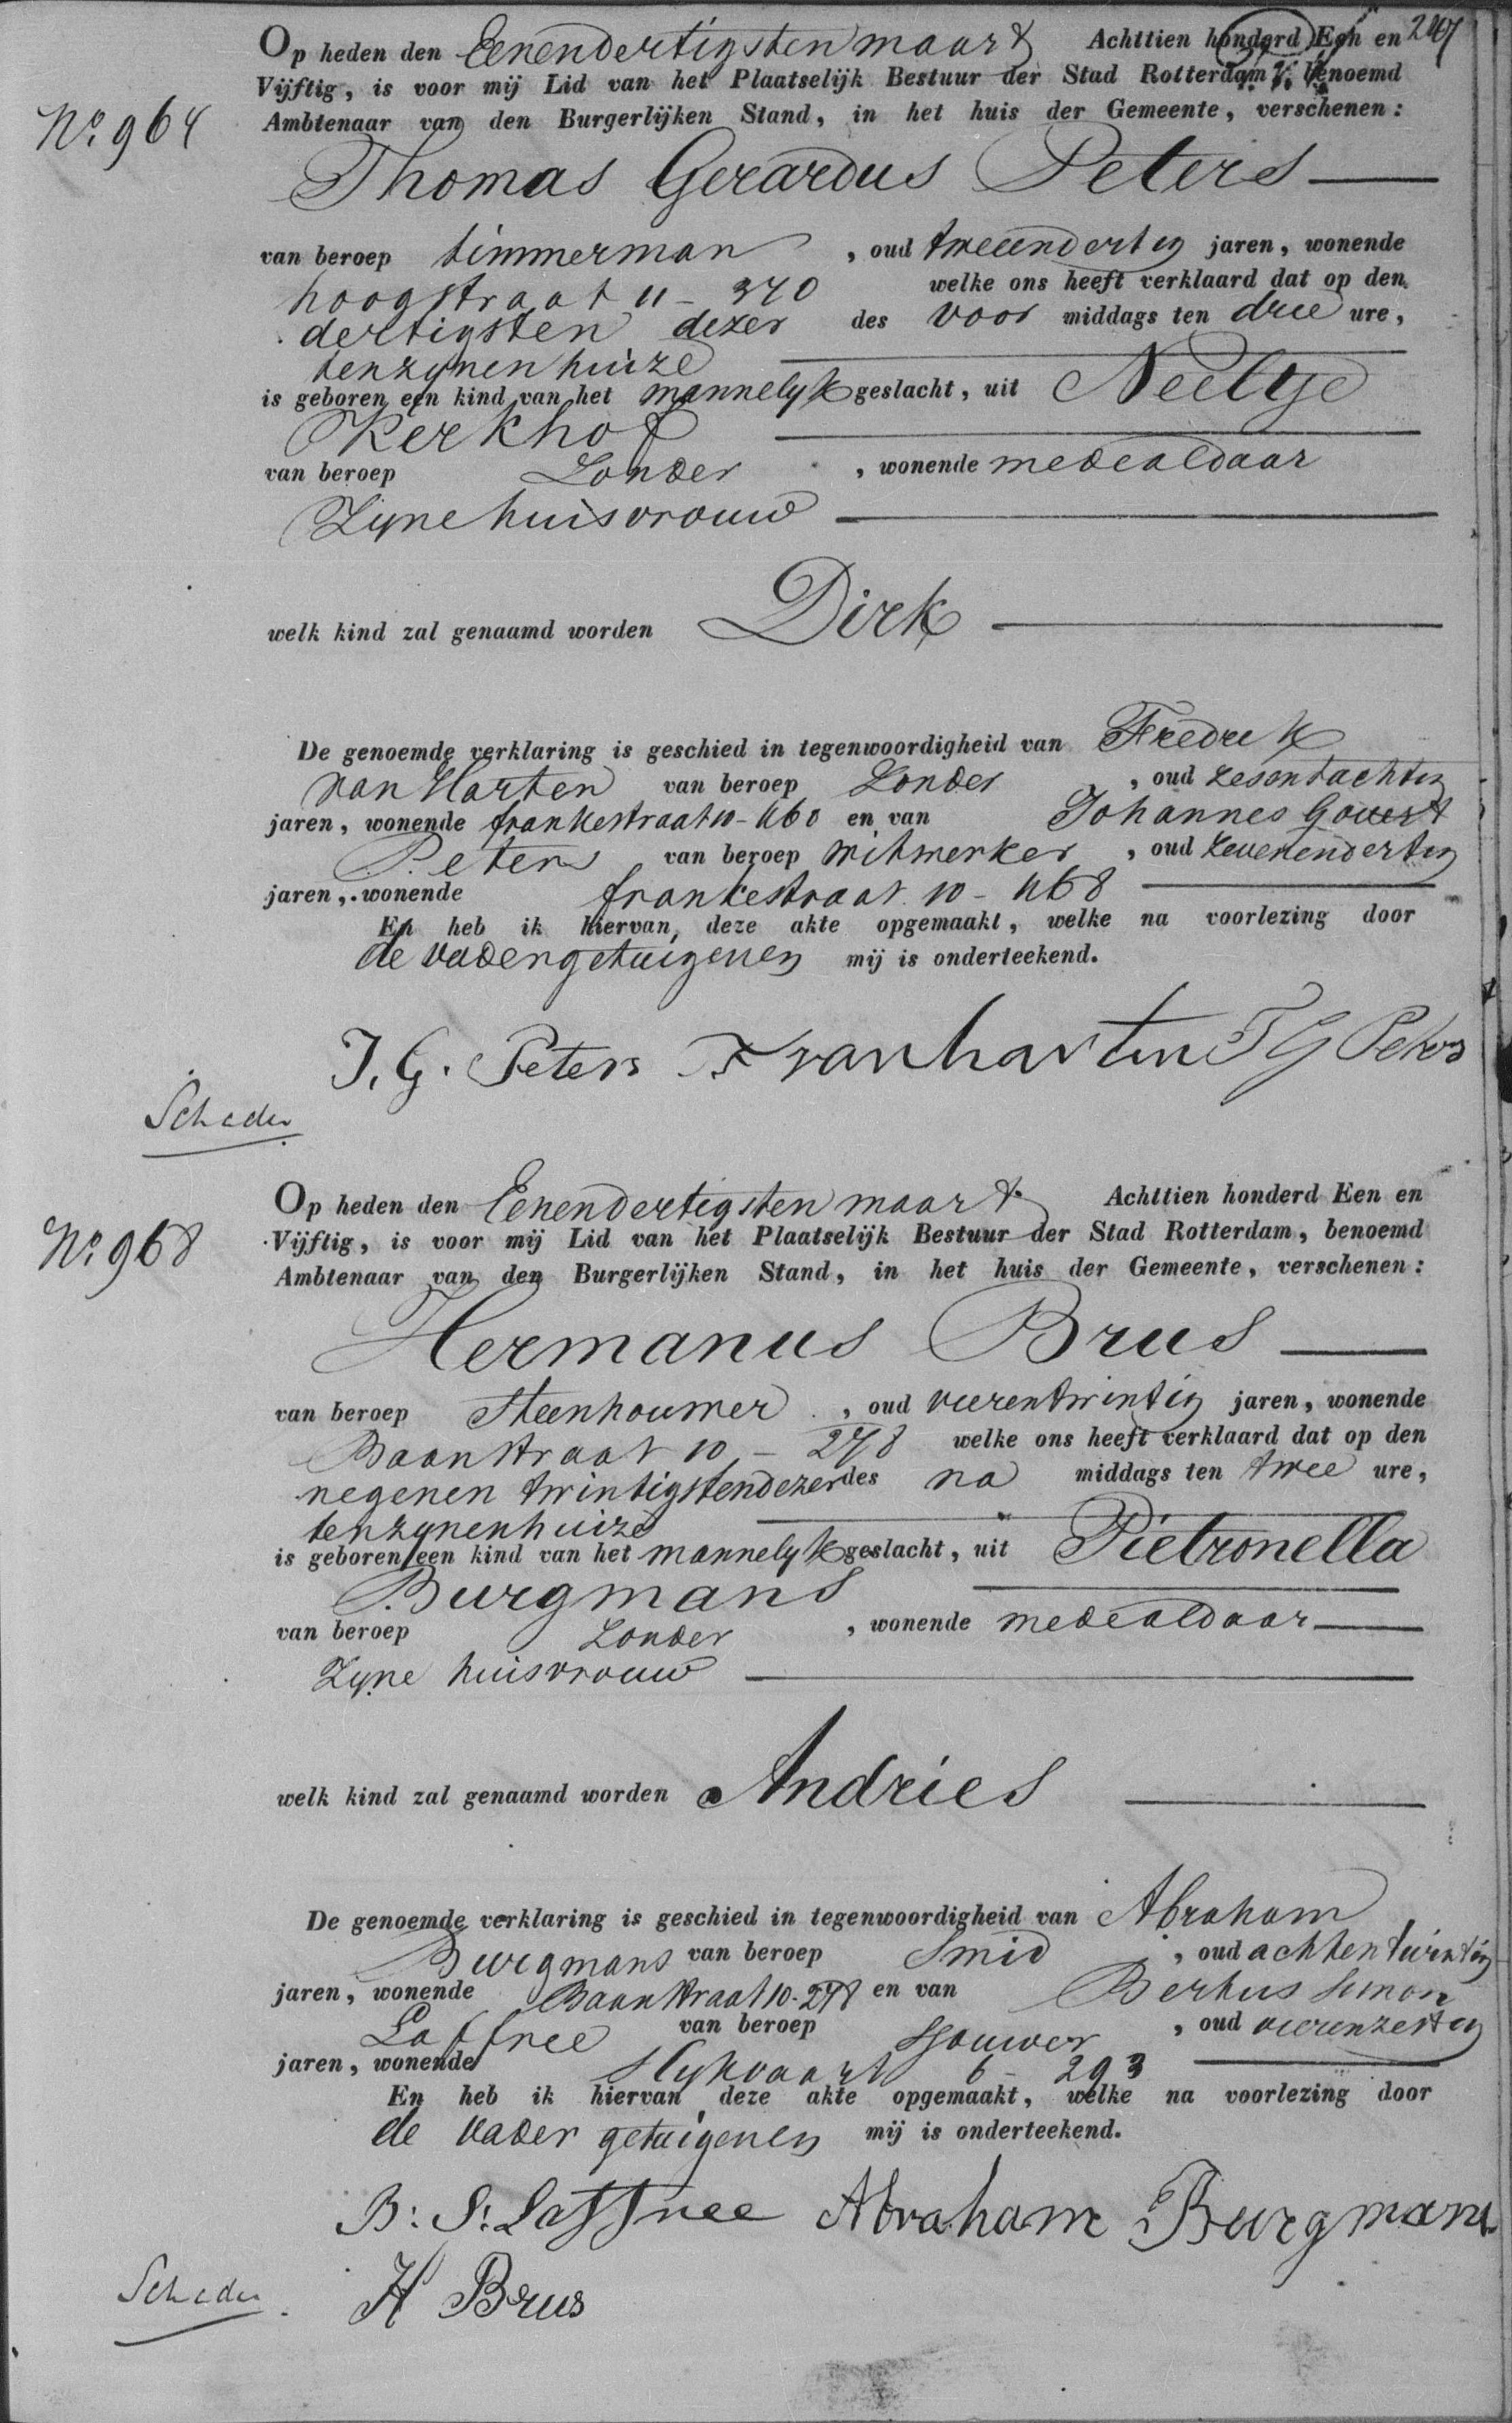 Op heden den Eenendertigsten maart Achttien honderd Een en 247
Vijftig, is voor mij Lid van het Plaatselijk Bestuur der Stad Rotterdam, benoemd
Ambtenaar van den Burgerlijken Stand, in het huis der Gemeente, verschenen:
No. 964
Thomas Gerardus Peters
van beroep timmerman, oud tweeendertig jaren, wonende
hoogstraat 11 - 340 welke ons heeft verklaard dat op den
dertigsten dezer des voor middags ten drie ure,
tenzynenhuize
is geboren een kind van het mannelyk geslacht, uit Neeltje
Kerkhof
van beroep Zonder, wonende medealdaar
Zyne huisvrouw
welk kind zal genaamd worden Dirk
De genoemde verklaring is geschied in tegenwoordigheid van Fredrik
van Harten van beroep Zonder, oud zesentachtig
jaren, wonende frankestraat 10 - 460 en van Johannes Govert
Peters van beroep witwerker, oud zevenendertig
jaren, wonende frankestraat 10 - 468
En heb ik hiervan, deze akte opgemaakt, welke na voorlezing door
de vader getuigenen mij is onderteekend.
J. G. Peters F van harten T G Peters
Schader
Op heden den Eenendertigsten maart Achttien honderd Een en
No. 968
Vijftig, is voor mij Lid van het Plaatselijk Bestuur der Stad Rotterdam, benoemd
Ambtenaar van den Burgerlijken Stand, in het huis der Gemeente, verschenen:
Hermanus Brus
van beroep Steenhouwer, oud vierentwintig jaren, wonende
Baanstraat 10 - 278 welke ons heeft verklaard dat op den
negenen twintigstendezer des na middags ten twee ure,
tenzynenhuize
is geboren een kind van het mannelyk geslacht, uit Pietronella
Burgmans
van beroep Zonder, wonende medealdaar
Zyne huisvrouw
welk kind zal genaamd worden Andries
De genoemde verklaring is geschied in tegenwoordigheid van Abraham
Burgmans van beroep Smid, oud achtentwintig
jaren, wonende Baanstraat 10 - 278 en van Bertus Simon
Laffree van beroep Sjouwer, oud vierenzestig
jaren, wonende Slykvaart 6 - 293
En heb ik hiervan deze akte opgemaakt, welke na voorlezing door
de vader getuigenen mij is onderteekend.
B: S: Laffree Abraham Burgmans
Schader H Brus